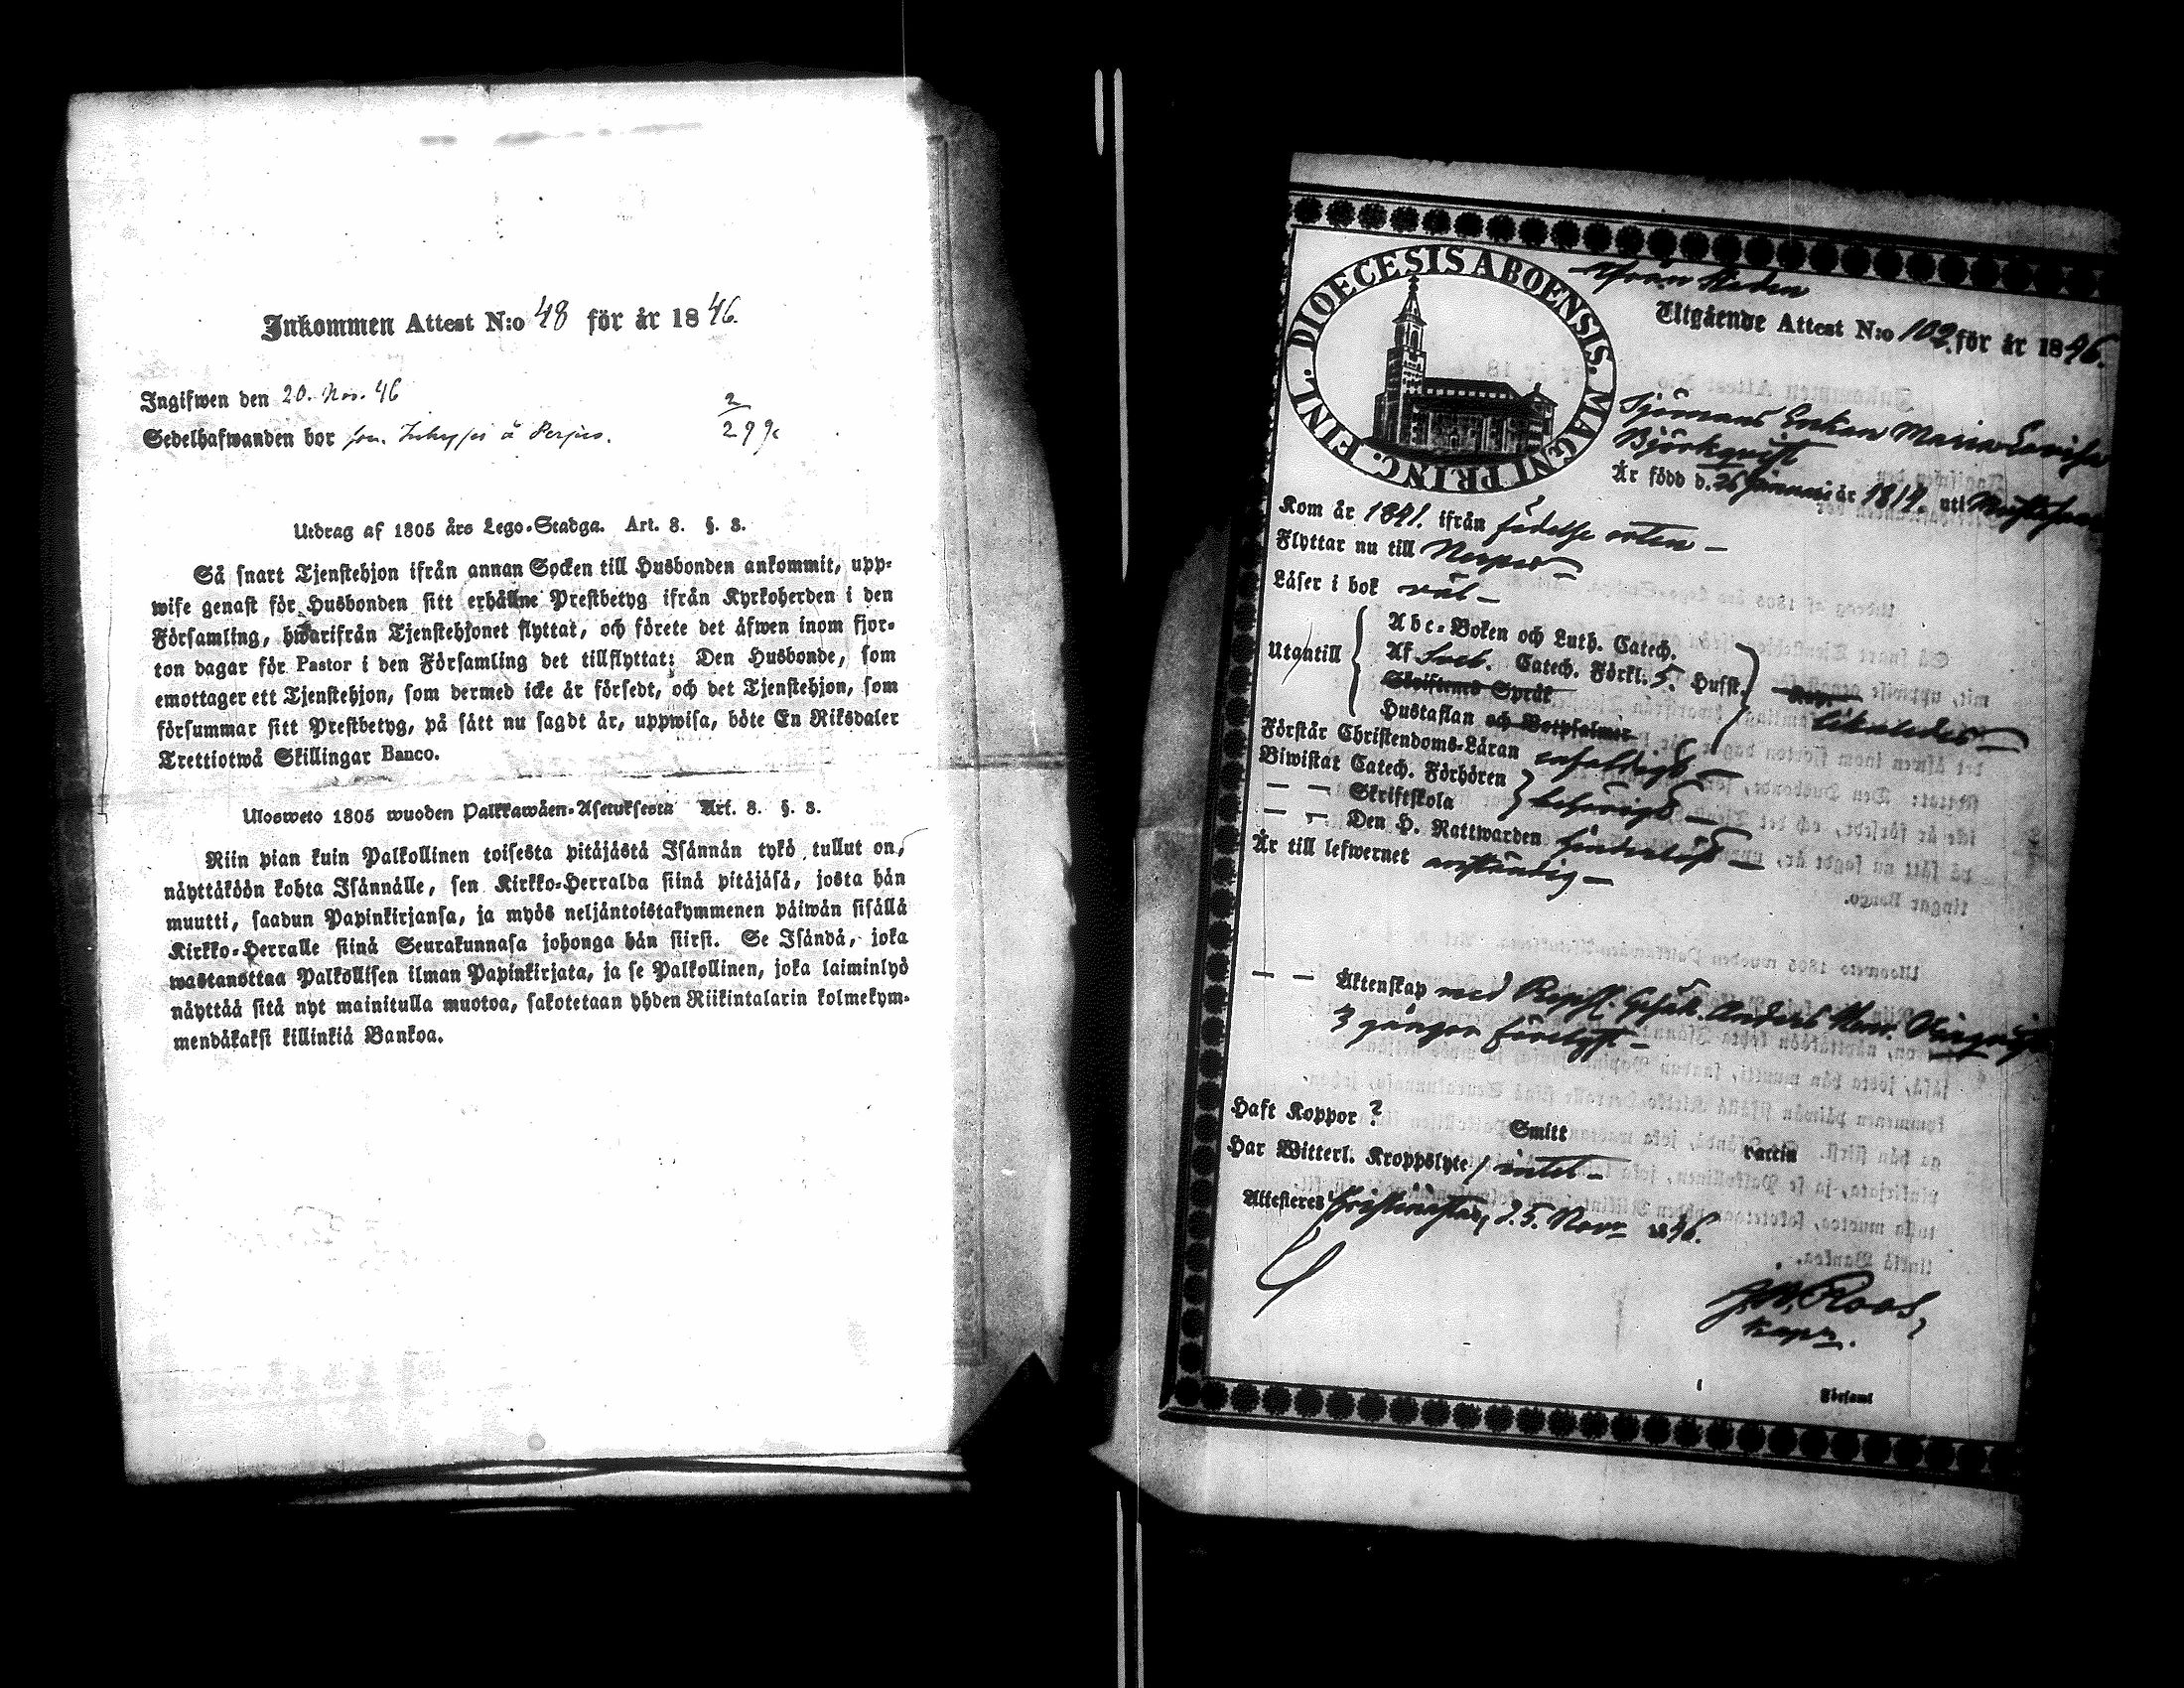 Inkommen Attest N:o 48 för år 1846.
Ingifwen den 20. Nov. 46
Sedelhafwanden bor
2
29
Utdrag af 1805 års Lego-Stadga. Art. 8. §. 8.
Så snart Tjenstehjon ifrån annan Socken till Husbonden ankommit, upp-
wise genast för Husbonden sitt erhållne Prestbetyg ifrån Kyrkoherden i den
Församling, hwarifrån Tjenstehjonet flyttat, och förete det äfwen inom fjor-
ton dagar för Pastor i den Församling det tillflyttat; Den Husbonde, som
emottager ett Tjenstehjon, som dermed icke är försedt, och det Tjenstehjon, som
försummar sitt Prestbetyg, på sätt nu sagdt är, uppwisa, böte En Riksdaler
Trettiotwå Skillingar Banco.
Ulosweto 1805 wuoden Palkkawäen-Asetuksesta Art. 8. §. 8.
Niin pian kuin Palkollinen toisesta pitäjästä Isännän tykö tullut on,
näyttäköön kohta Isännälle, sen Kirkko-Herralda siinä pitäjäsä, josta hän
muutti, saadun Papinkirjansa, ja myös neljäntoistakymmenen päiwän sisällä
Kirkko-Herralle siinä Seurakunnasa johonga hän siirsi. Se Isändä, joka
wastanottaa Palkollisen ilman Papinkirjata, ja se Palkollinen, joka laiminlyö
näyttää sitä nyt mainitulla muotoa, sakotetaan yhden Riikintalarin kolmekym-
mendäkaksi killinkiä Bankoa.
DIOECESIS ABOENSIS. MAGNI PRINC. FINL.
ifrån Staden
Utgående Attest N:o 102. för år 1846.
Sjömans Enkan Maria Lovisa
Björkqvist
Är född d. 26 Januari år 1819. uti
Kom år 1841. ifrån födelse orten —
Flyttar nu till Nerpes —
Läser i bok väl —
Utantill
Abc-Boken och Luth. Catech.
Af Sveb. Catech. Förkl. 5. Husst.
Skriftenes Språk
Hustaflan och Botpsalmer
likaledes —
Förstår Christendoms-Läran enfaldigt —
Biwistat Catech. Förhören
— — Skriftskola
behörigt —
— — Den H. Nattwarden
Är till lefwernet anständig —
— — Äktenskap med Anders
3 gånger förelyst —
Haft Koppor ?
Smitt
Vaccin
Har Witterl. Kroppslyte / intet —
Attesteres Christinestad, d. 5. Novr 1846.
J. W. Roos,
kapn.
Församl